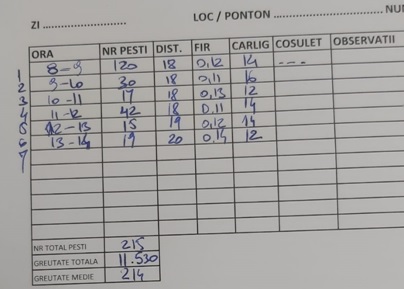 ZI ........................ LOC / PONTON ........................ NU
ORA NR PESTI DIST. FIR CARLIG COSULET OBSERVATII
1 8-9 120 18 0,12 14 ---
2 9-10 30 18 0,11 16
3 10-11 17 18 0,13 12
4 11-12 42 18 0,11 14
5 12-13 15 19 0,12 14
6 13-14 19 20 0,14 12
7
NR TOTAL PESTI 215
GREUTATE TOTALA 11.530
GREUTATE MEDIE 214